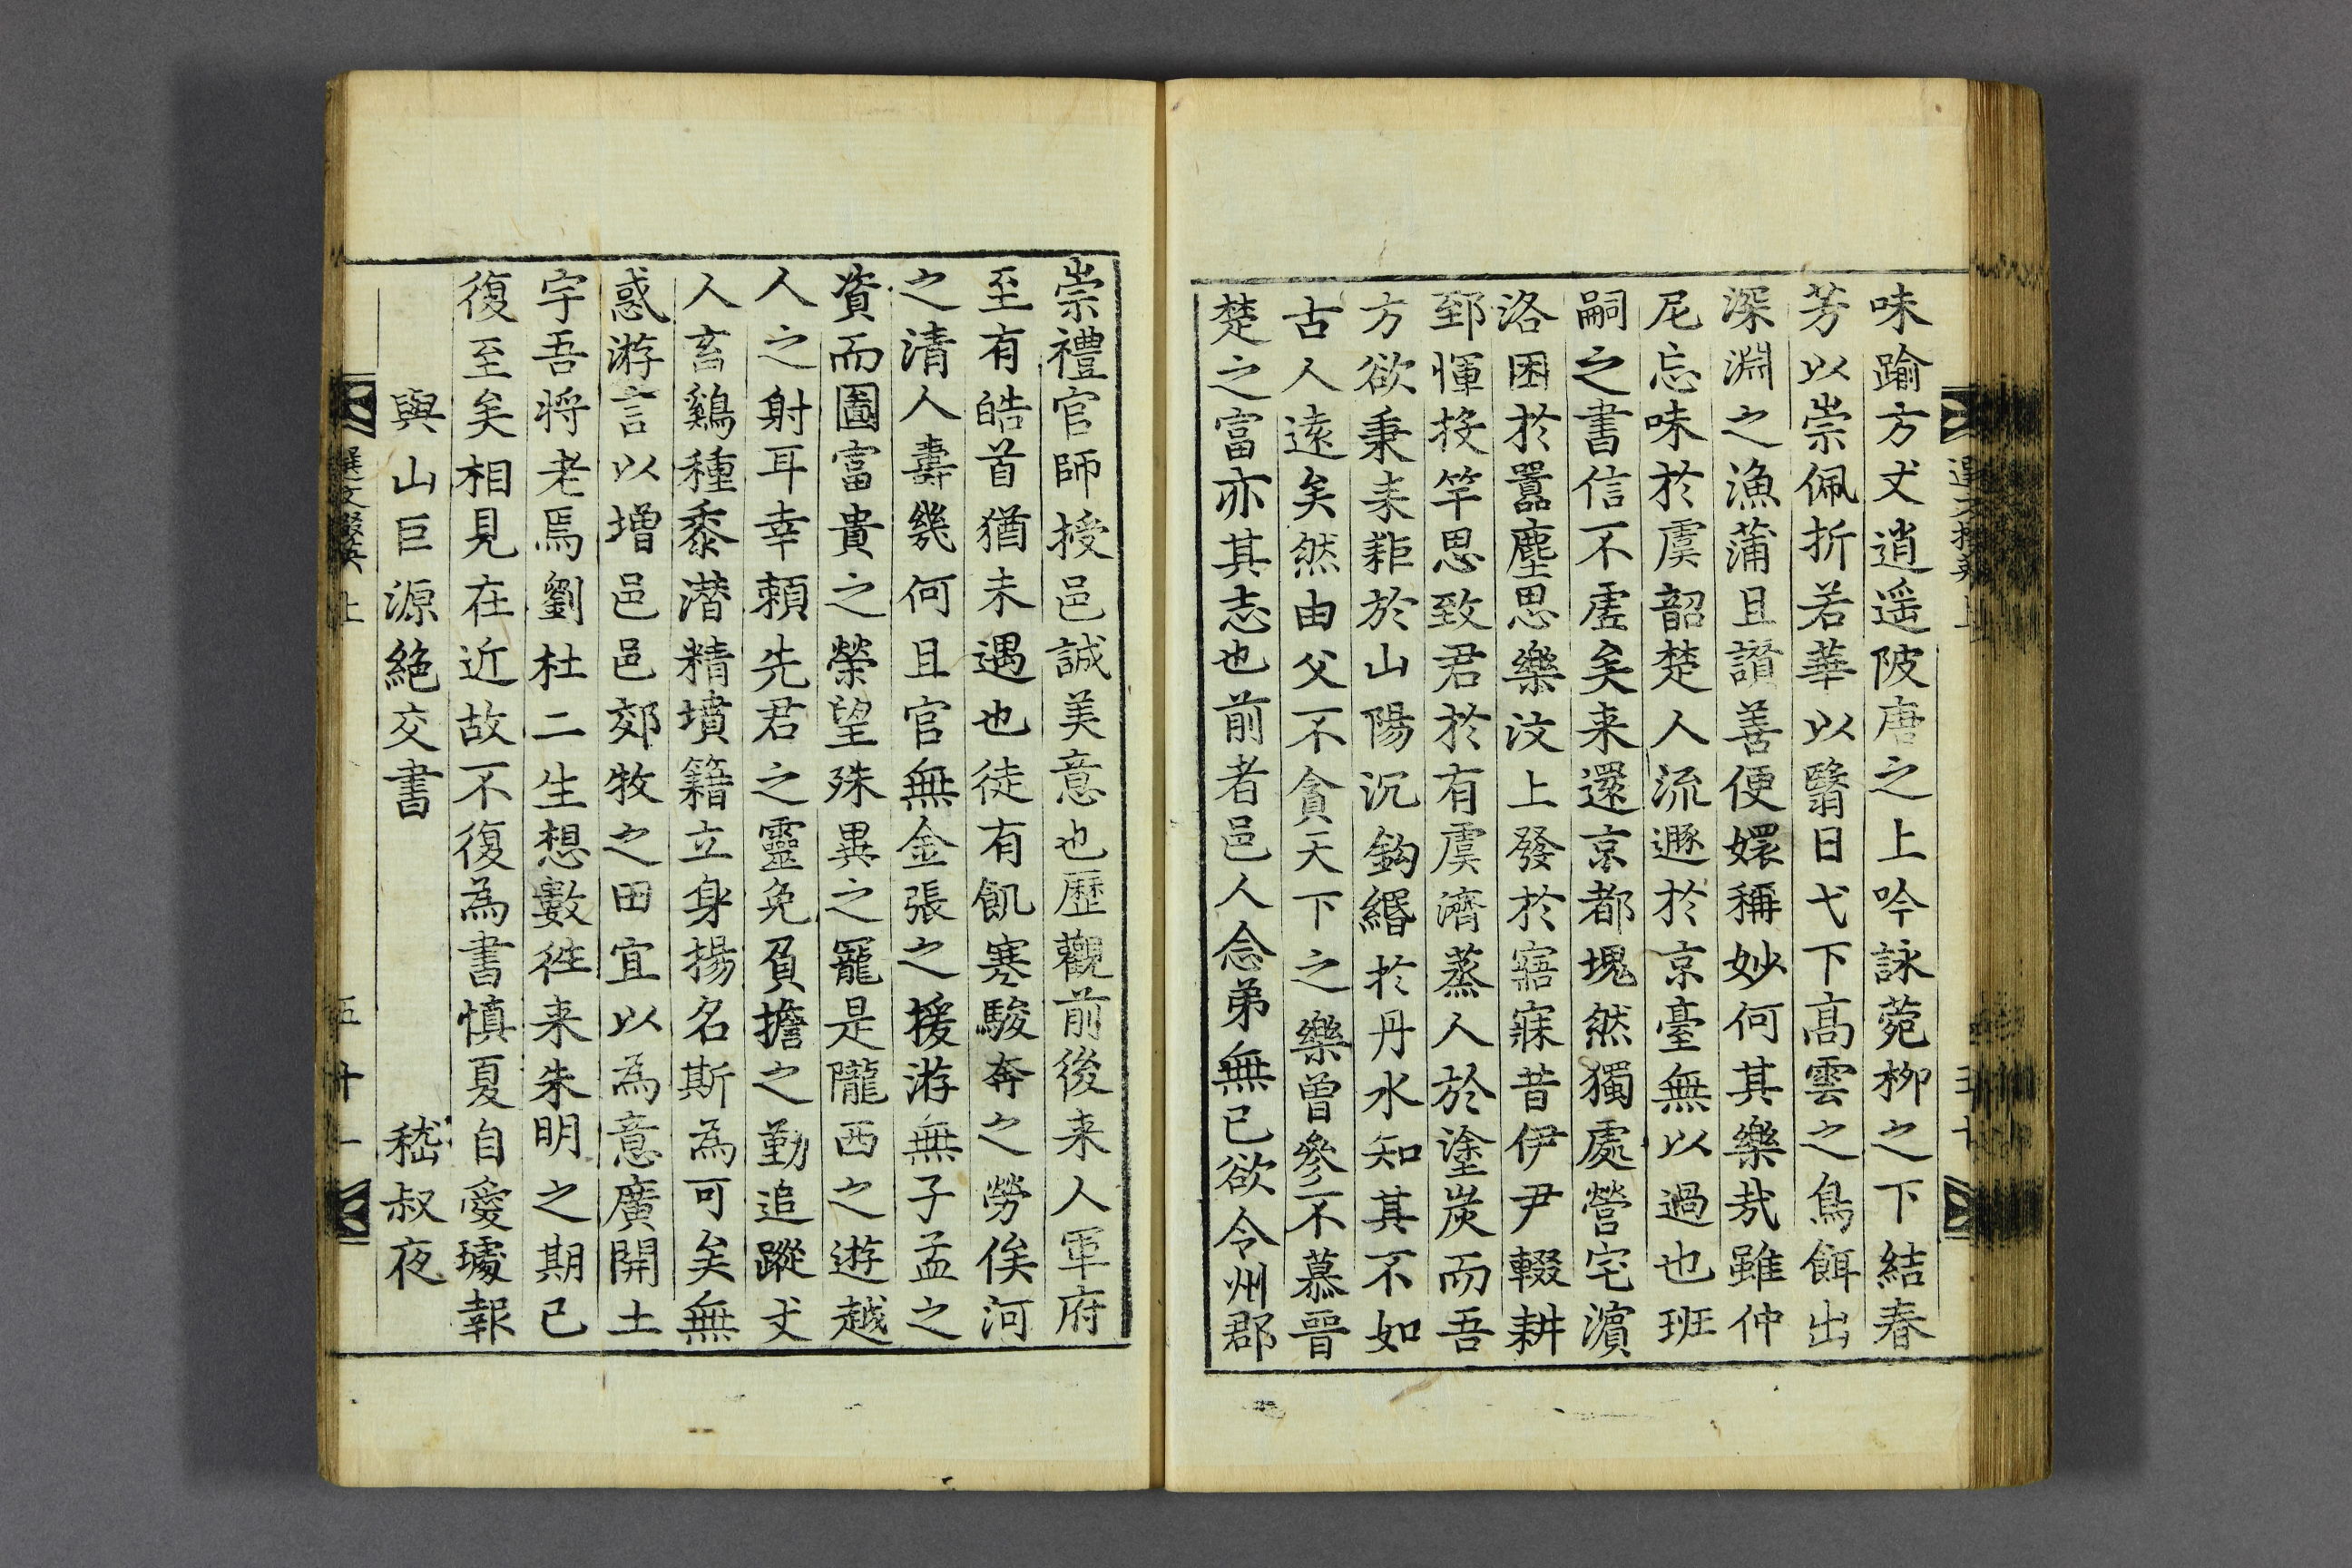 味踰方丈逍遥陂唐之上吟詠菀柳之下結春
芳以崇佩折若華以翳日弋下高雲之鳥餌出
深淵之漁蒲且讃善便嬛稱妙何其樂哉雖仲
尼忘味於虞韶楚人流遯於京臺無以過也班
嗣之書信不虗矣来還京都塊然獨處營宅濵
洛困於囂塵思樂汶上發於寤寐昔伊尹輟耕
郅惲投竿思致君於有虞濟蒸人於塗炭而吾
方欲秉耒耟於山陽沉鈎緡於丹水知其不如
古人逺矣然由父不貪天下之樂曽參不慕晉
楚之富亦其志也前者邑人念弟無已欲令州郡
崇禮官師授邑誠美意也歷觀前後来人軍府
至有皓首猶未遇也徒有飢寒駿奔之勞俟河
之清人壽幾何且官無金張之援游無子孟之
資而圖富貴之榮望殊異之寵是隴西之遊越
人之射耳幸賴先君之靈免負擔之勤追蹤丈
人畜鷄種黍潜精墳籍立身揚名斯為可矣無
惑游言以增邑邑郊牧之田宜以為意廣開土
宇吾將老焉劉杜二生想數徃来朱明之期已
復至矣相見在近故不復為書慎夏自愛璩報
與山巨源絶交書 嵇叔夜
選文掇英 上 五十一